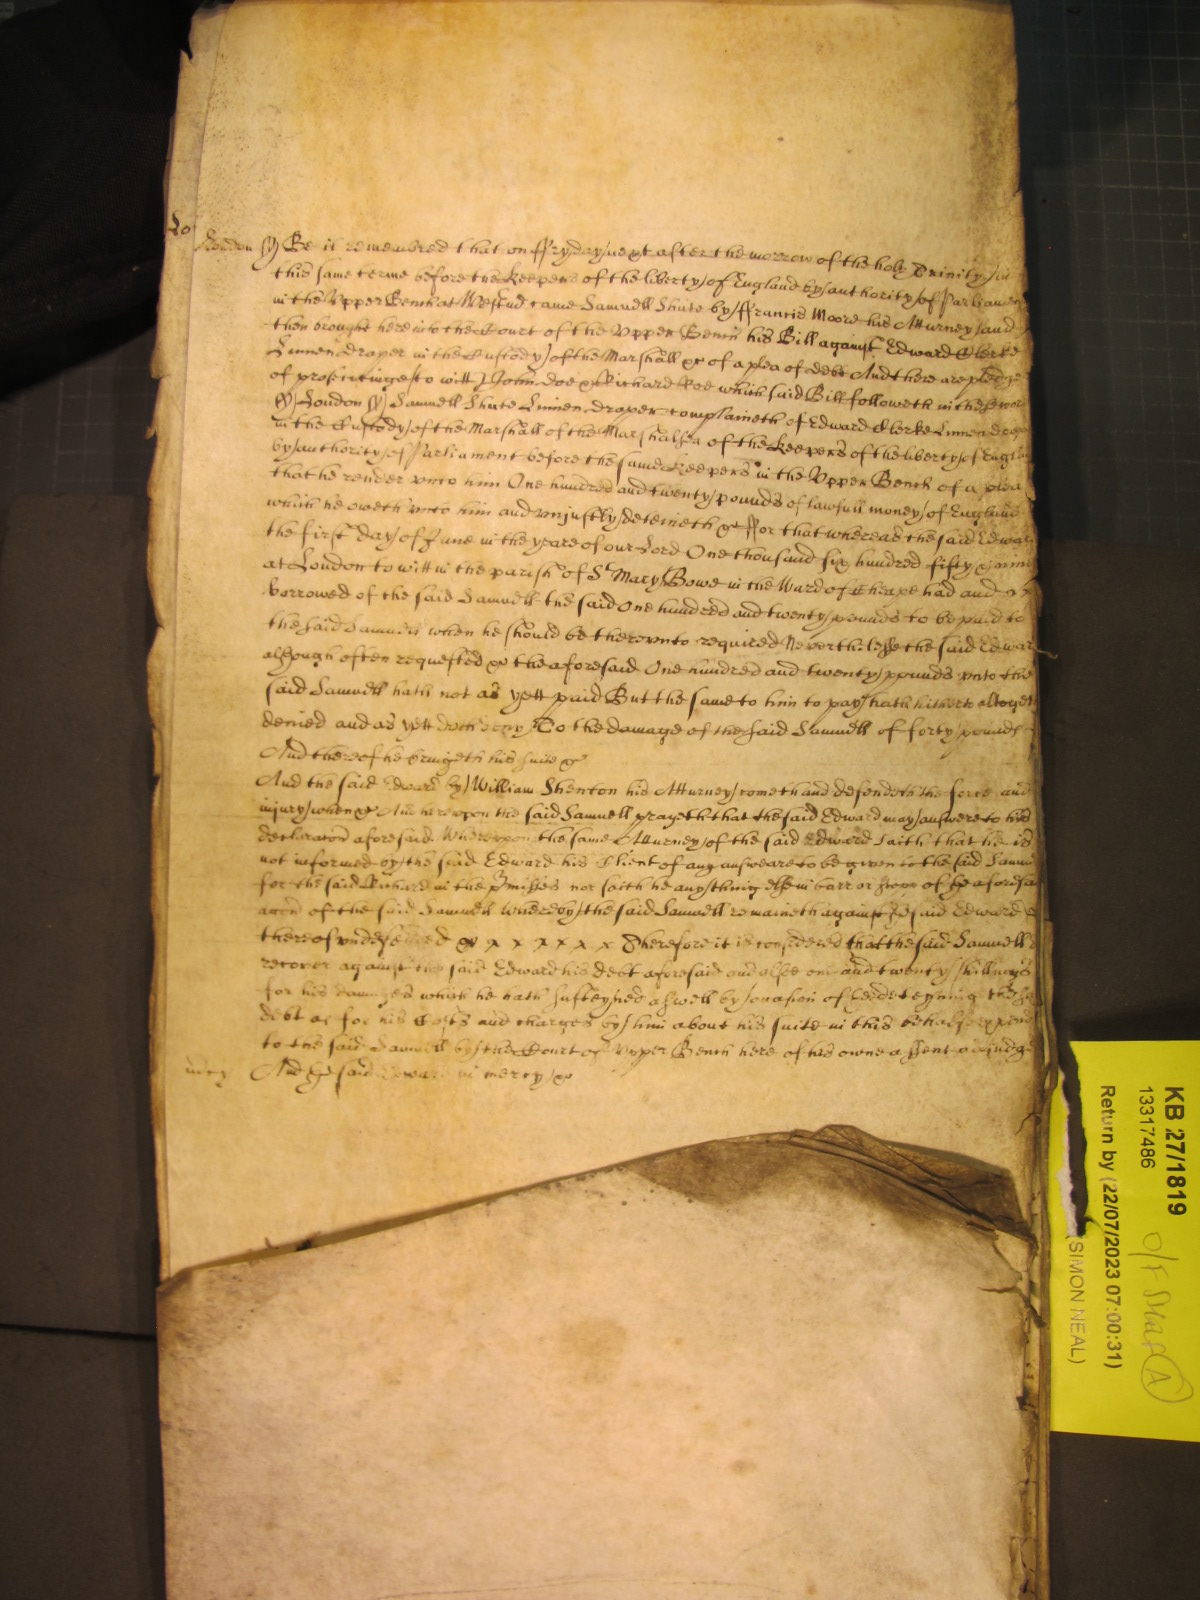 London ss Be it remembred that on ffryday next after the morrow of the holy Trinity in
this same terme before the keepers of the liberty of England by authority of Parliamen
in the Upper Bench at Westmr came Samuell Shute by ffrancis Moore his Atturney and
then brought here into the Court of the Upper Bench his Bill against Edward Clerke
Linnen draper in the Custody of the Marshall &c of a plea of debt And there are pledge
of prosecutinge to witt John Doe & Richard Roe which said Bill followeth in these wor
ss London ss Samuell Shute Linnen draper complaineth of Edward Clerke Linnen drap
in the Custody of the Marshall of the Marshalsea of the keepers of the liberty of Engla
by authority of Parliament before the same keepers in the Upper Bench of a plea
that he render unto him One hundred and twenty pounds of lawfull money of England
which he oweth unto him and unjustly deteineth &c ffor that whereas the said Edwar
the first day of June in the yeare of our Lord One thousand six hundred fifty & nine
at London to witt in the parish of St Mary Bowe in the Ward of Cheape had and
borrowed of the said Samuell the said One hundred and twenty pounds to be paid to
the said Samuell when he should be thereunto required Neverthelesse the said Edwar
although often requested &c the aforesaid One hundred and twenty pounds unto the
said Samuell hath not as yett paid But the same to him to pay hath hitherto altoget
denied and as yett doth deny To the damage of the said Samuell of forty pounds
And thereof he bringeth his suite &c
And the said Edward by William Shenton his Atturney cometh and defendeth the force and
injury when &c And hereupon the said Samuell prayeth that the said Edward may answere to his
declaracon aforesaid Whereupon the same Atturney of the said Edward saith that he is
not informed by the said Edward his Client of any answeare to be given to the said Samu
for the said Richard in the pmisses nor saith he any thing else in barr or stopp of the aforesa
accon of the said Samuell whereby the said Samuell remaineth against the said Edward
thereof undefended &c x x x x x x Therefore it is considered that the said Samuell
recover against the said Edward his debt aforesaid and alsoe one and twenty shillings
for his damages which he hath susteyned aswell by occasion of the deteyning the
debt as for his Costs and charges by him about his suite in this behalfe expend
to the said Samuell by the Court of Upper Bench here of his owne assent adjudge
mcy And the said Edward in mercy &c
KB 27/1819
13317486
Return by (22/07/2023 07:00:31)
SIMON NEAL)
A